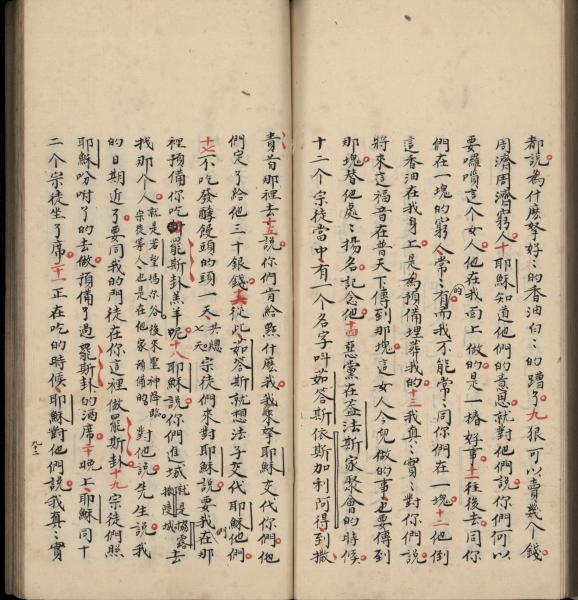 都說為什麽拏好〻的香油白〻的蹧了九狠可以賣幾个錢
周濟周濟窮人十耶穌知道他們的意思就對他們說你們何以
要囉唕這个女人他在我面上做的是一樁好事十一往後去同你
們在一塊的窮人常〻有的而我不能常〻同你們在一塊十二他倒
這香油在我身上是為預備埋葬我的十三我真〻實〻對你們說
將來這福音在普天下傳到那塊這女人今兒做的事也要傳到
那塊替他處〻揚名記念他十四惡黨在盖法斯家聚會的時候
十二个宗徒當中有一个名字呌茹答斯依斯加利阿得到撒
責首那裡去十五說你們肯給點什麽我我來拏耶穌交代你們他
們定了給他三十銀錢十六從此茹答斯就想法子交代耶穌他們
十七不吃發酵饅頭的頭一天共總七天宗徒們來對耶穌說要我們在那
裡預備你吃罷斯卦羔羊呢十八耶穌說你們進城就是協露撒陵城去
找那个人就是若望瑪尔谷後來聖神降臨宗徒等人也是在他家預備的對他說先生說我
的日期近了要同我的門徒在你這裡做罷斯卦十九宗徒們照
耶穌吩咐了的去做預備了過罷斯卦的酒席二十晚上耶穌同十
二个宗徒坐了席二十一正在吃的時候耶穌對他們說我真〻實